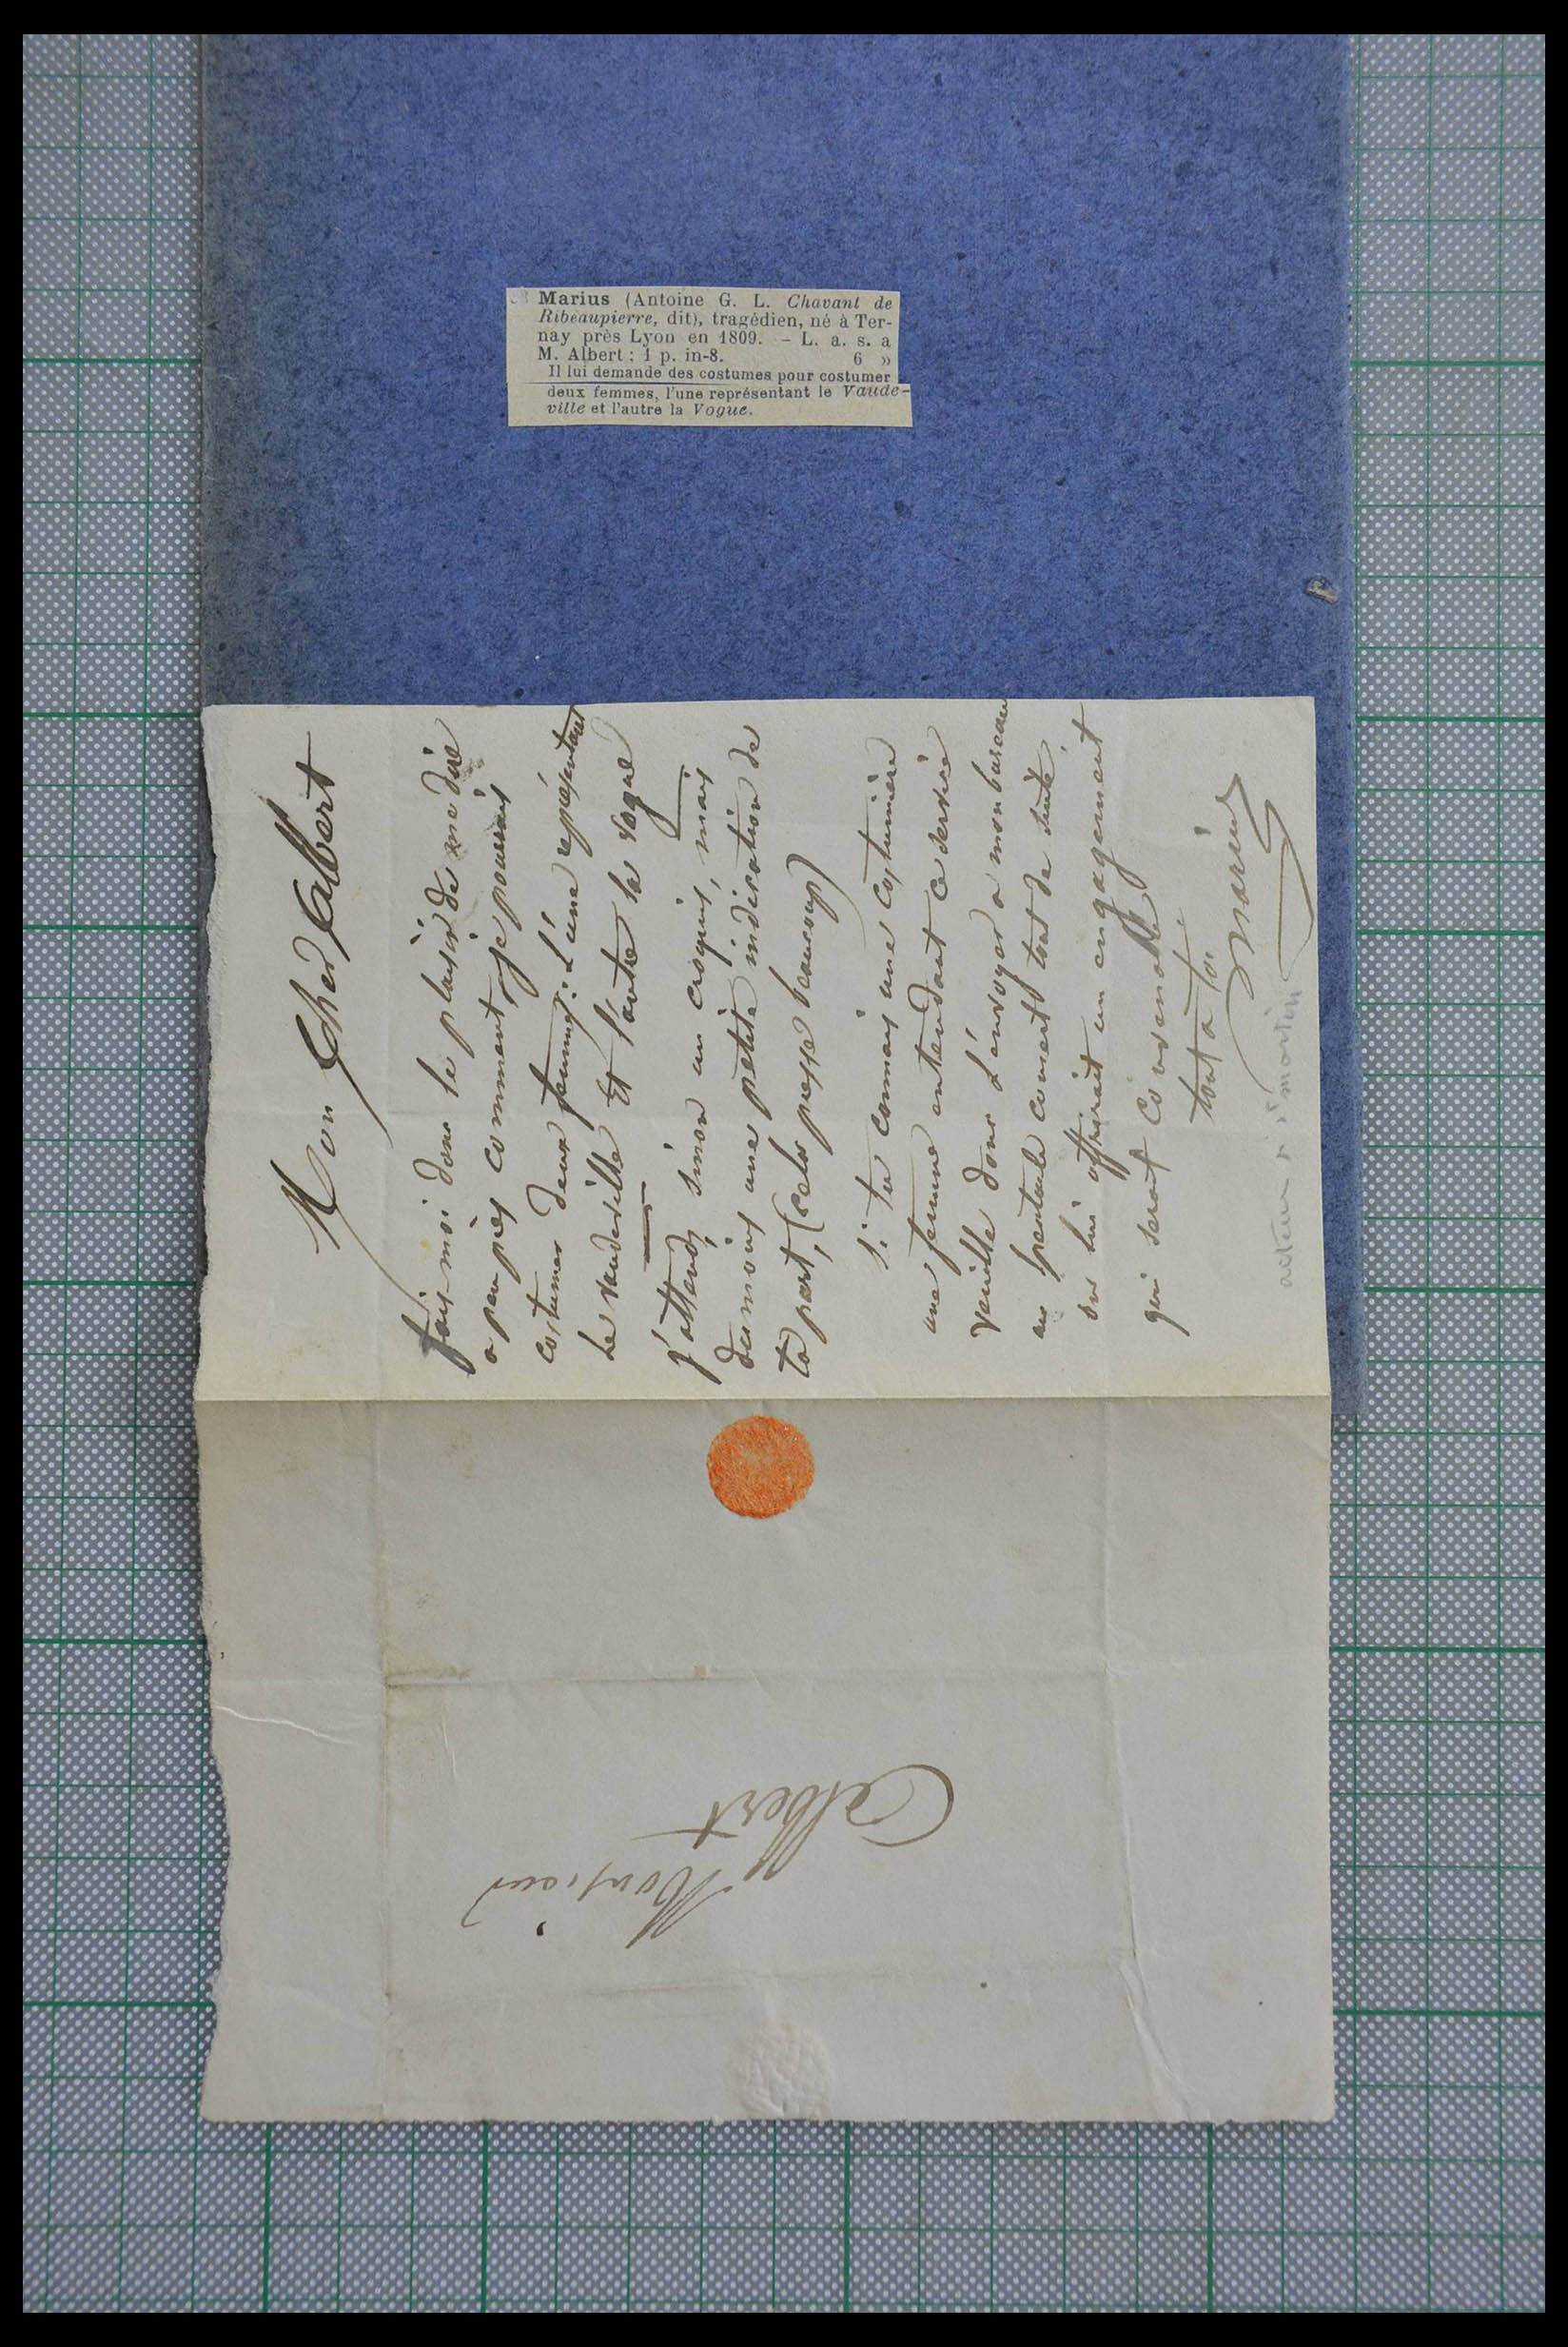 Marius (Antoine G. L. Chavant de
Ribeaupierre, dit), tragédien, né à Ter-
nay près Lyon en 1809. – L. a. s. a
M. Albert ; 1 p. in-8. 6 »
Il lui demande des costumes pour costumer
deux femmes, l'une représentant le Vaude-
ville et l'autre la Vogue.
Mon Cher Albert
fais-moi donc le plaisir de me dire
a peu près comment je pourrais
costumer deux femmes: L'une représentant
Le vaudeville et l'autre la Vogue
j'attends, sinon un croquis, mais
du moins une petite indication de
ta part, (cela presse beaucoup)
si tu connais une costumière
une femme entendant ce service
veuille donc L'envoyer a mon bureau
au spectacle couvert tout de suite
on lui offrirait un engagement
qui serait convenable
tout a toi
Marius
acteur Pte St Martin
Monsieur
Albert